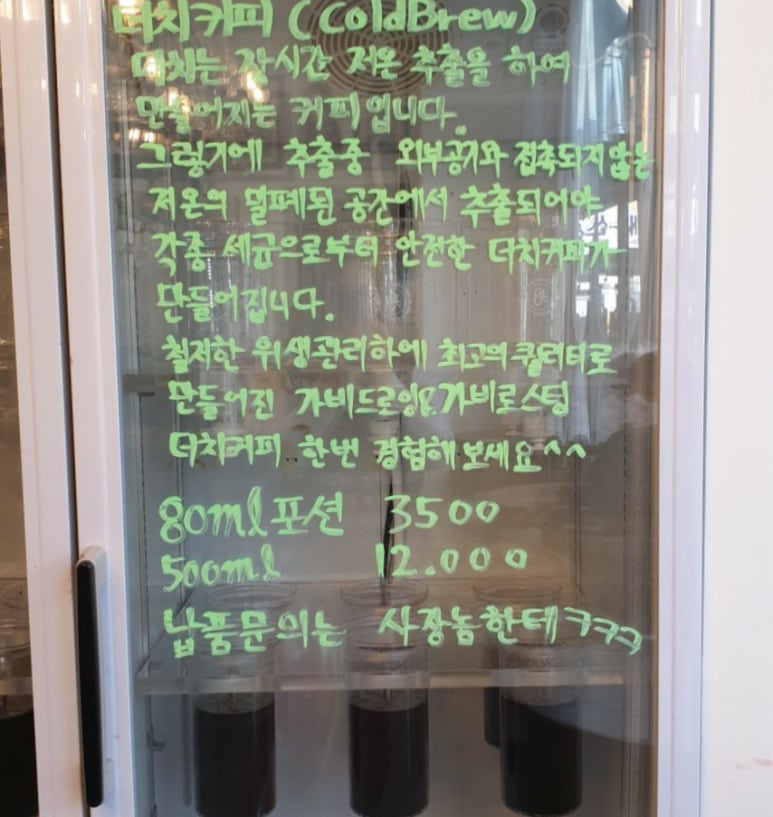 더치커피 (ColdBrew)
더치는 장시간 저온 추출을 하여
만들어지는 커피입니다.
그렇기에 추출중 외부공기와 접촉되지않는
저온의 밀폐된 공간에서 추출되어야
각종 세균으로부터 안전한 더치커피가
만들어집니다.
철저한 위생관리하에 최고의 퀄리티로
만들어진 가비드로잉&가비로스팅
더치커피 한번 경험해보세요^^
80ml 포션 3500
500ml 12.000
납품문의는 사장놈한테ㅋㅋㅋ